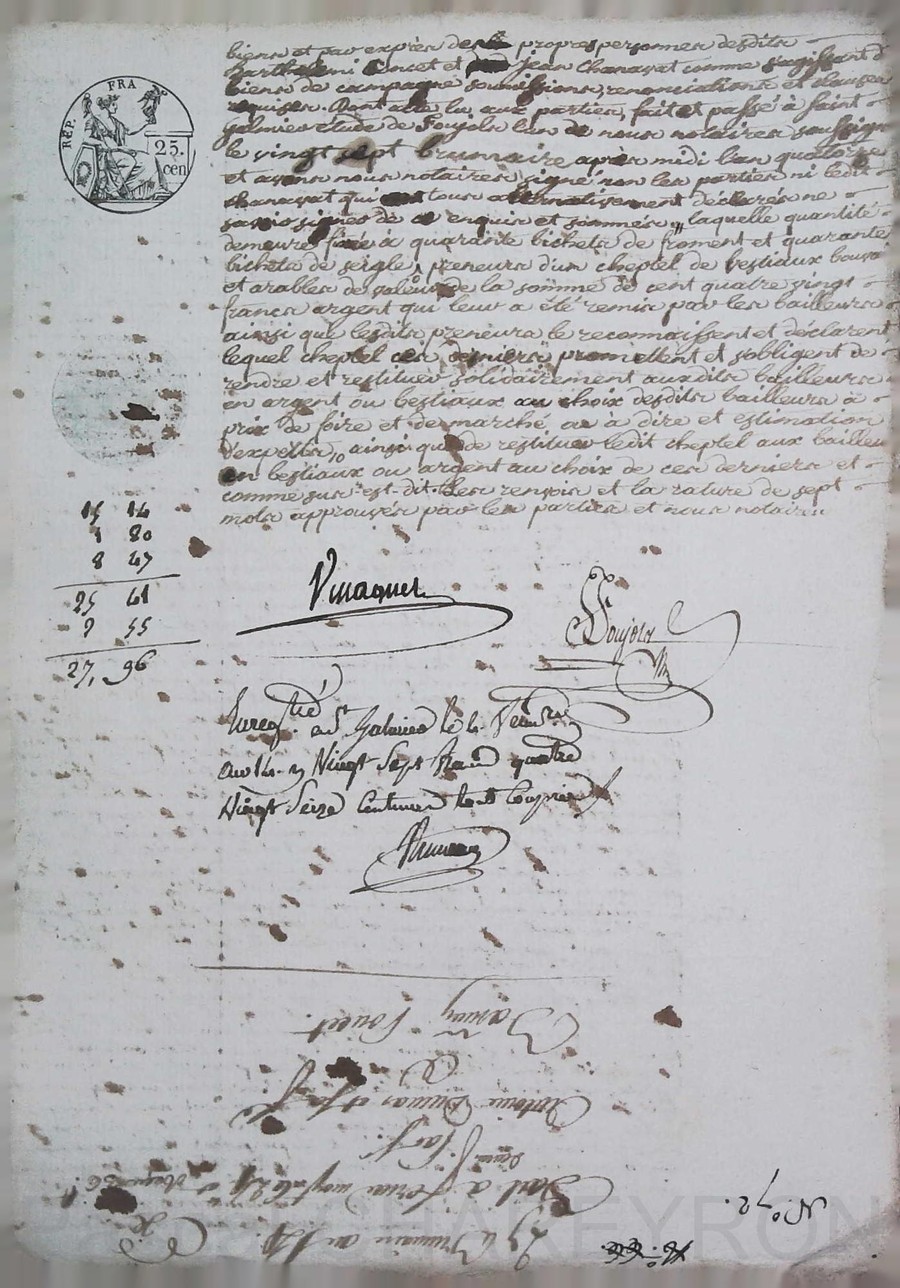 REP. FRA
25. cen
biens et par exprès des propres personnes desdits
Barthelemi Poncet et Jean Chanavat comme s'agissant d
biens de campagne soumissions, renonciations et clauses
requises. Dont acte lu aux parties, fait et passé à Saint
Galmier étude de Foujols l'un de nous notaires soussign
le vingt sept brumaire après midi l'an quatorze
et avons nous notaires signé non les parties ni ledit
chanavat qui tous alternativement déclarés ne
savoir signer de ce enquis et sommés, laquelle quantité
demeure fixée à quarante bichets de froment et quarante
bichets de seigle, preneurs d'un cheptel de bestiaux bouvi
et arables de valeur de la somme de cent quatre vingt
francs argent qui leur a été remis par les bailleurs
ainsi que lesdits preneurs le reconnaissent et déclarent
lequel cheptel ces derniers promettent et s'obligent de
rendre et restituer solidairement auxdits bailleurs
en argent ou bestiaux au choix desdits bailleurs à
prix de foire et de marché ou à dire et estimation
d'expert, ainsi que de restituer ledit cheptel aux bailleu
en bestiaux ou argent au choix de ces derniers et
comme sus-est-dit. Les renvois et la rature de sept
mots approuvés par les parties et nous notaires
15 14
1 80
8 47
25 41
2 55
27, 96
Foujols
Enregtré a St Galmier le 4 frim
an 14 Vingt Sept francs quatre
Vingt Seize Centimes tout Compris
Poncet
Antoine Dumas et
Bail a ferme
27 brumaire an 14
No. 72